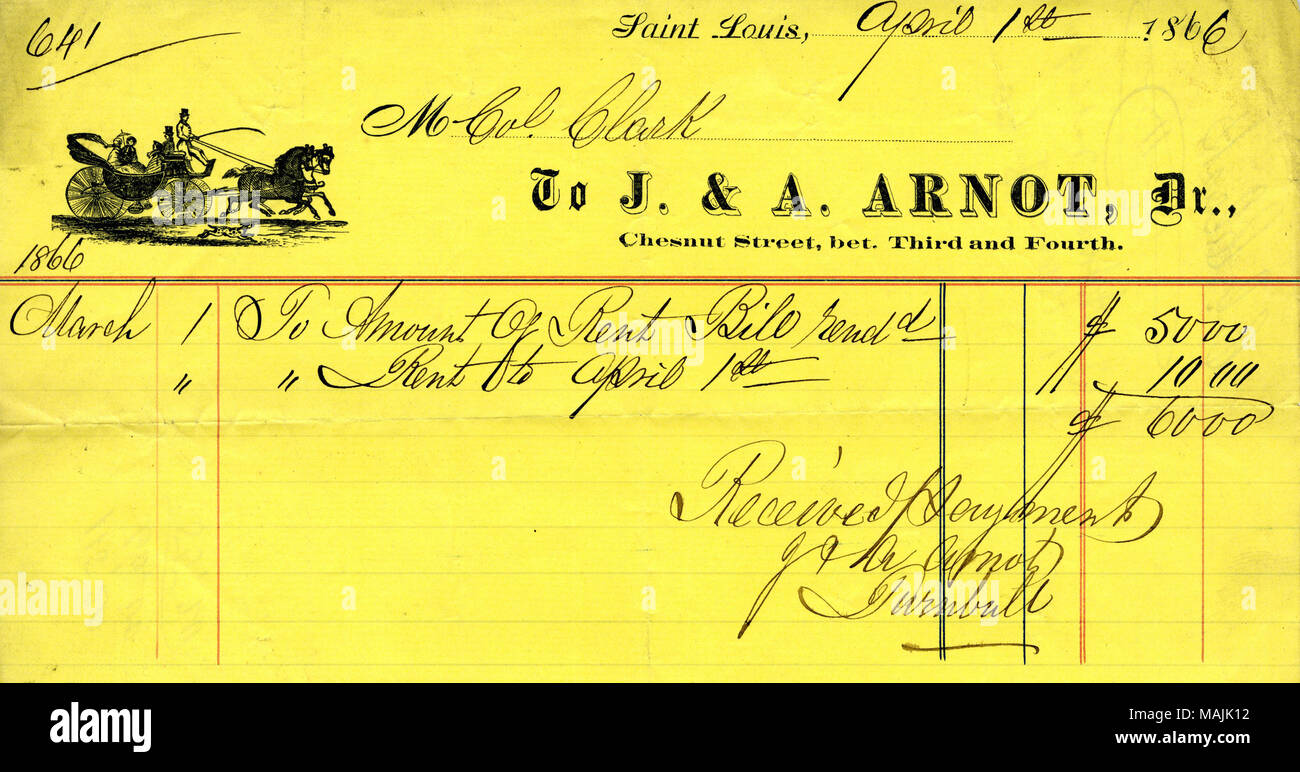 641
Saint Louis, April 1st 1866
M Col. Clark
To J. & A. ARNOT, Dr.,
Chesnut Street, bet. Third and Fourth.
1866
March 1 To Amount Of Rent Bill rend d $ 50 00
" " Rent to April 1st 10 00
$ 60 00
Received Payment
J & A Arnot
Turnbull
alamy
Image ID: MAJK12
www.alamy.com